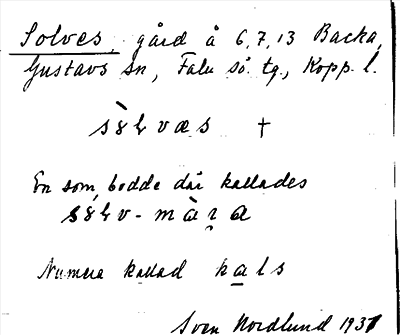 Solves, gård å 6,7,13 Backa,
Gustavs sn, Falu sö. tg., Kopp. l.
sö̀ɫvæs †
En som bodde där kallades
sö̀ɫv-màṛa
Numera kallad kals
Sven Nordlund 1931